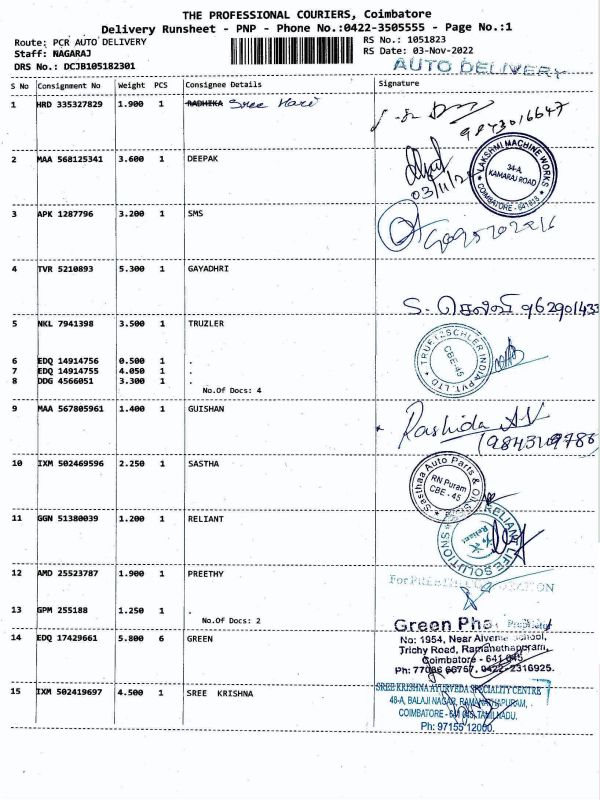 THE PROFESSIONAL COURIERS, Coimbatore
Delivery Runsheet - PNP - Phone No.:0422-3505555 - Page No.:1
Route: PCR AUTO DELIVERY
Staff: NAGARAJ
DRS No.: DCJB105182301
RS No.: 1051823
RS Date: 03-Nov-2022
AUTO DELIVERY
S No Consignment No Weight PCS Consignee Details Signature
1 HRD 335327829 1.900 1 RADHIKA Sree Hari
9843016647
2 MAA 568125341 3.600 1 DEEPAK
03/11/22
LAKSHMI MACHINE WORKS
34-A,
KAMARAJ ROAD
COIMBATORE - 641018
3 APK 1287796 3.200 1 SMS
4 TVR 5210893 5.300 1 GAYADHRI
S. செல்வி 962901433
5 NKL 7941398 3.500 1 TRUZLER
TRUETZSCHLER INDIA PVT. LTD
CBE-45
6 EDQ 14914756 0.500 1 .
7 EDQ 14914755 4.050 1 .
8 DDG 4566051 3.300 1 .
No.Of Docs: 4
9 MAA 567805961 1.400 1 GUISHAN
Rashida A.V
9843109786
10 IXM 502469596 2.250 1 SASTHA
Sasthaa Auto Parts & Oil
RN Puram
CBE - 45
11 GGN 51380039 1.200 1 RELIANT
RELIANT LIFE SOLUTIONS
Reliant
12 AMD 25523787 1.900 1 PREETHY
For
13 GPM 255188 1.250 1 .
No.Of Docs: 2
Proprietor
14 EDQ 17429661 5.800 6 GREEN
Green
No: 1954, Near Alvernia School,
Trichy Road, Ramanathappram,
Coimbatore - 641 045
Ph: 77086 66767, 0422-2316925.
15 IXM 502419697 4.500 1 SREE KRISHNA
SREE KRISHNA AYURVEDA SPECIALITY CENTRE
48-A, BALAJI NAGAR, RAMANATHAPURAM,
COIMBATORE - 641 045, TAMILNADU.
Ph: 97155 12000.